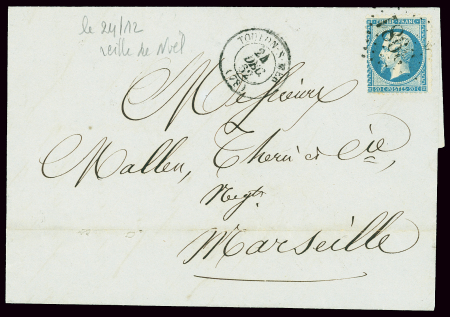 le 24/12
veille de Noël
TOULON-S-MER
24
DEC
62
(78)
EMPIRE FRANC
20 C POSTES 20 C
Messieurs
Mallen, Theric & Cie
Negts
Marseille